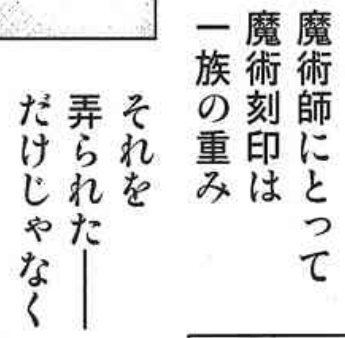 魔術師にとって
魔術刻印は
一族の重み
それを
弄られた――
だけじゃなく